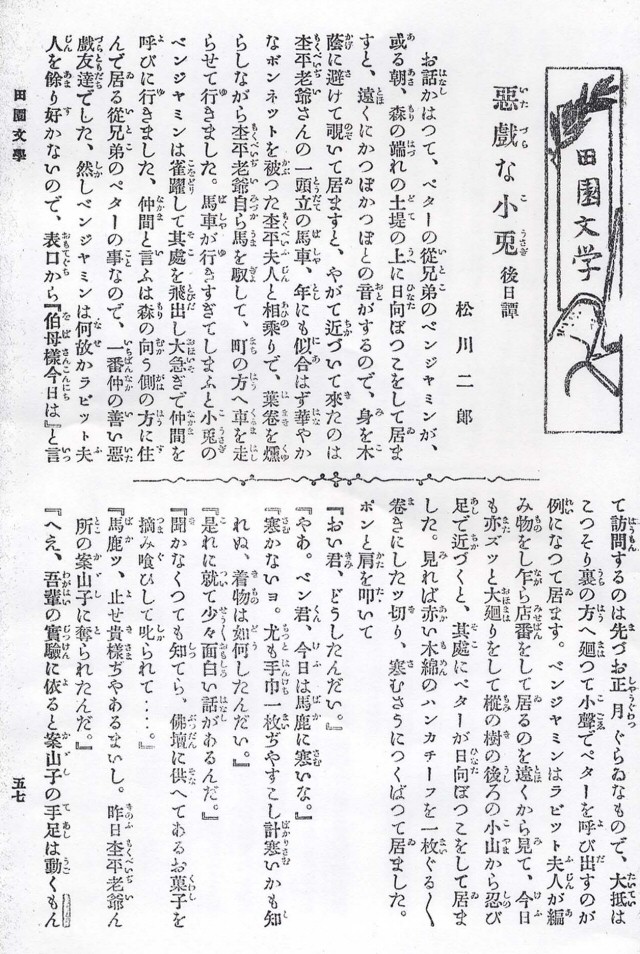 田園文学
惡戲な小兎 後日譚
松川二郎
お話かはつて、ペターの從兄弟のベンジャミンが、
或る朝、森の端れの土堤の上に日向ぼつこをして居ま
すと、遠くにかつぽかつぽとの音がするので、身を木
蔭に避けて覗いて居ますと、やがて近づいて來たのは
杢平老爺さんの一頭立の馬車、年にも似合はず華やか
なボンネットを被つた杢平夫人と相乘りで、葉卷を燻
らしながら杢平老爺自ら馬を馭して、町の方へ車を走
らせて行きました。馬車が行きすぎてしまふと小兎の
ベンジャミンは雀躍して其處を飛出し大急ぎで仲間を
呼びに行きました、仲間と言ふは森の向う側の方に住
んで居る從兄弟のペターの事なので、一番仲の善い惡
戲友達でした、然しベンジャミンは何故かラビット夫
人を餘り好かないので、表口から『伯母樣今日は』と言
て訪問するのは先づお正月ぐらゐなもので、大抵は
こつそり裏の方へ廻つて小聲でペターを呼び出すのが
例になつて居ます。ベンジャミンはラビット夫人が編
み物をし乍ら店番をして居るのを遠くから見て、今日
も亦ズッと大廻りをして樅の樹の後ろの小山から忍び
足で近づくと、其處にペターが日向ぼつこをして居ま
した。見れば赤い木綿のハンカチーフを一枚ぐる〱
卷きにしたッ切り、寒むさうにつくばつて居ました。
ポンと肩を叩いて
『おい君、どうしたんだい。』
『やあ。ベン君、今日は馬鹿に寒いな。』
『寒かないヨ。尤も手巾一枚ぢやすこし計寒いかも知
れぬ、着物は如何したんだい。』
『是れに就て少々面白い話があるんだ。』
『聞かなくつても知てら、佛壇に供へてあるお菓子を
摘み喰ひして叱られて‥‥。』
『馬鹿ッ、止せ貴樣ぢやあるまいし。昨日杢平老爺ん
所の案山子に奪られたんだ。』
『へえ、吾輩の實驗に依ると案山子の手足は動くもん
田園文學
五七